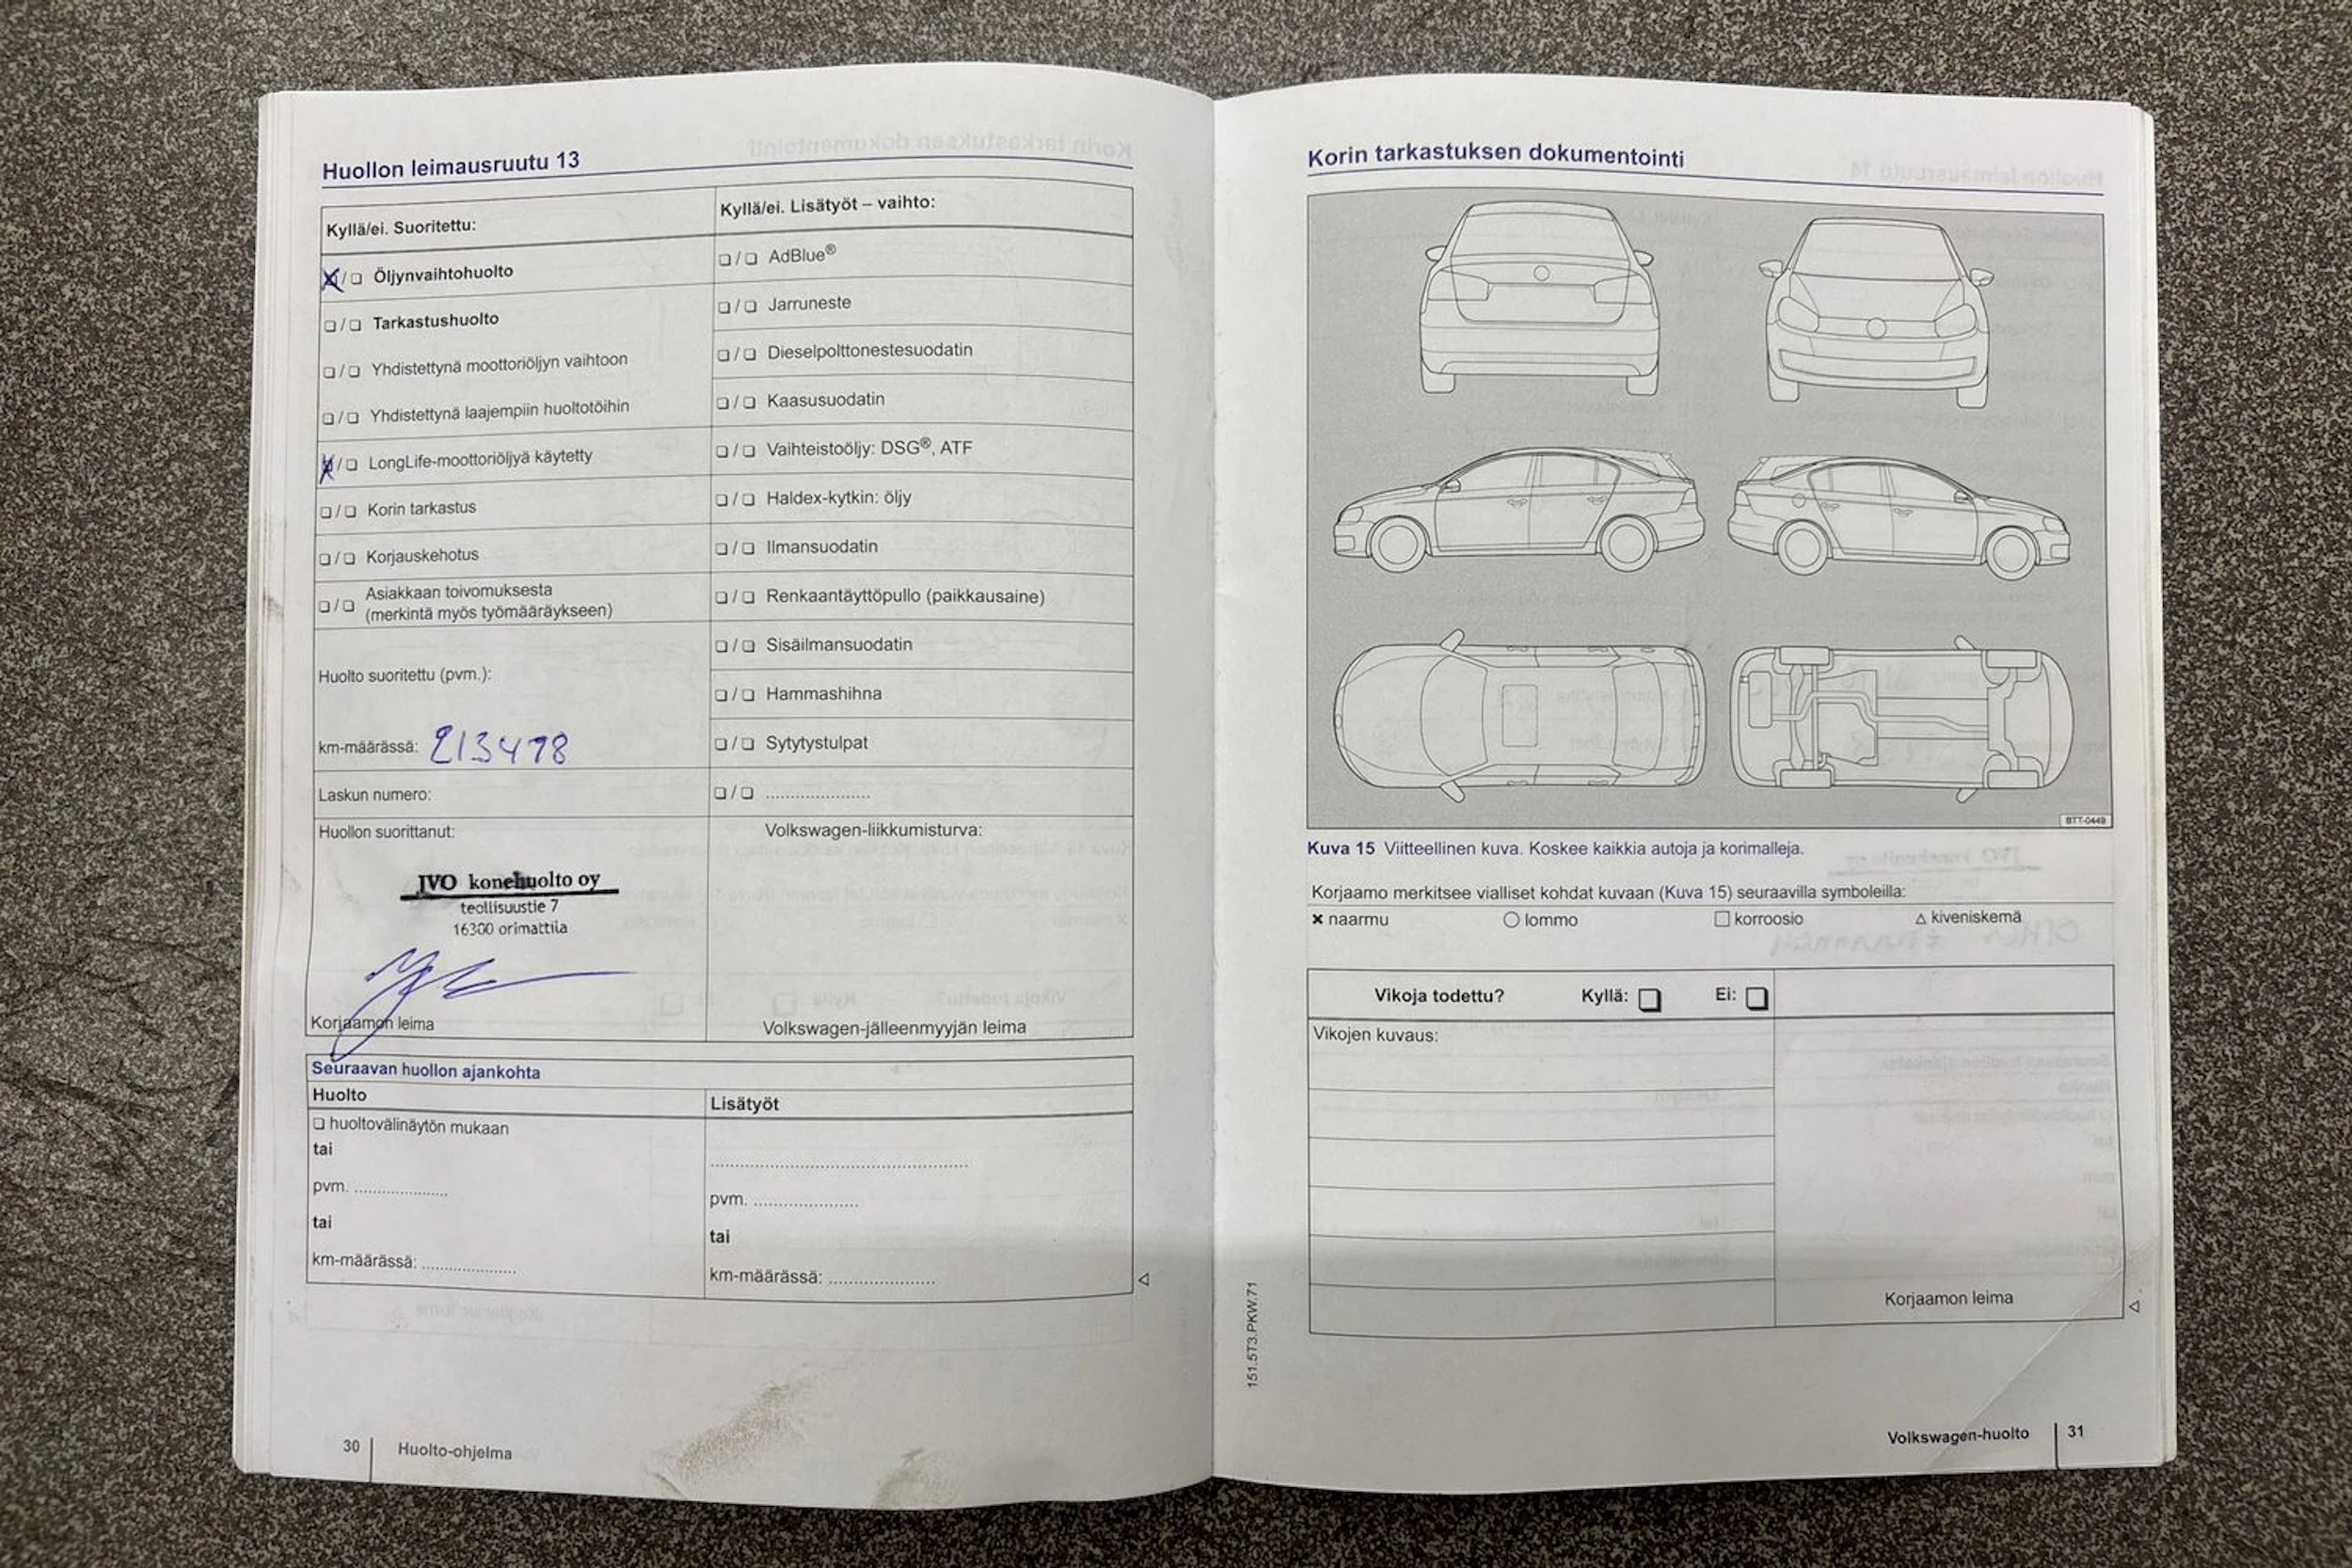 Huollon leimausruutu 13
Kyllä/ei. Suoritettu:
☒/❏ Öljynvaihtohuolto
❏/❏ Tarkastushuolto
❏/❏ Yhdistettynä moottoriöljyn vaihtoon
❏/❏ Yhdistettynä laajempiin huoltotöihin
☒/❏ LongLife-moottoriöljyä käytetty
❏/❏ Korin tarkastus
❏/❏ Korjauskehotus
❏/❏ Asiakkaan toivomuksesta
(merkintä myös työmääräykseen)
Huolto suoritettu (pvm.):
km-määrässä: 213478
Laskun numero:
Kyllä/ei. Lisätyöt – vaihto:
❏/❏ AdBlue®
❏/❏ Jarruneste
❏/❏ Dieselpolttonestesuodatin
❏/❏ Kaasusuodatin
❏/❏ Vaihteistoöljy: DSG®, ATF
❏/❏ Haldex-kytkin: öljy
❏/❏ Ilmansuodatin
❏/❏ Renkaantäyttöpullo (paikkausaine)
❏/❏ Sisäilmansuodatin
❏/❏ Hammashihna
❏/❏ Sytytystulpat
❏/❏ .....................
Huollon suorittanut:
JVO konehuolto oy
teollisuustie 7
16300 orimattila
Korjaamon leima
Volkswagen-liikkumisturva:
Volkswagen-jälleenmyyjän leima
Seuraavan huollon ajankohta
Huolto
❏ huoltovälinäytön mukaan
tai
pvm. ...................
tai
km-määrässä: ...................
Lisätyöt
.....................................................
pvm. .....................
tai
km-määrässä: .....................
30 Huolto-ohjelma
Korin tarkastuksen dokumentointi
BTT-0449
Kuva 15 Viitteellinen kuva. Koskee kaikkia autoja ja korimalleja.
Korjaamo merkitsee vialliset kohdat kuvaan (Kuva 15) seuraavilla symboleilla:
× naarmu ○ lommo □ korroosio △ kiveniskemä
Vikoja todettu? Kyllä: ❏ Ei: ❏
Vikojen kuvaus:
Korjaamon leima
151.5T3.PKW.71
Volkswagen-huolto 31